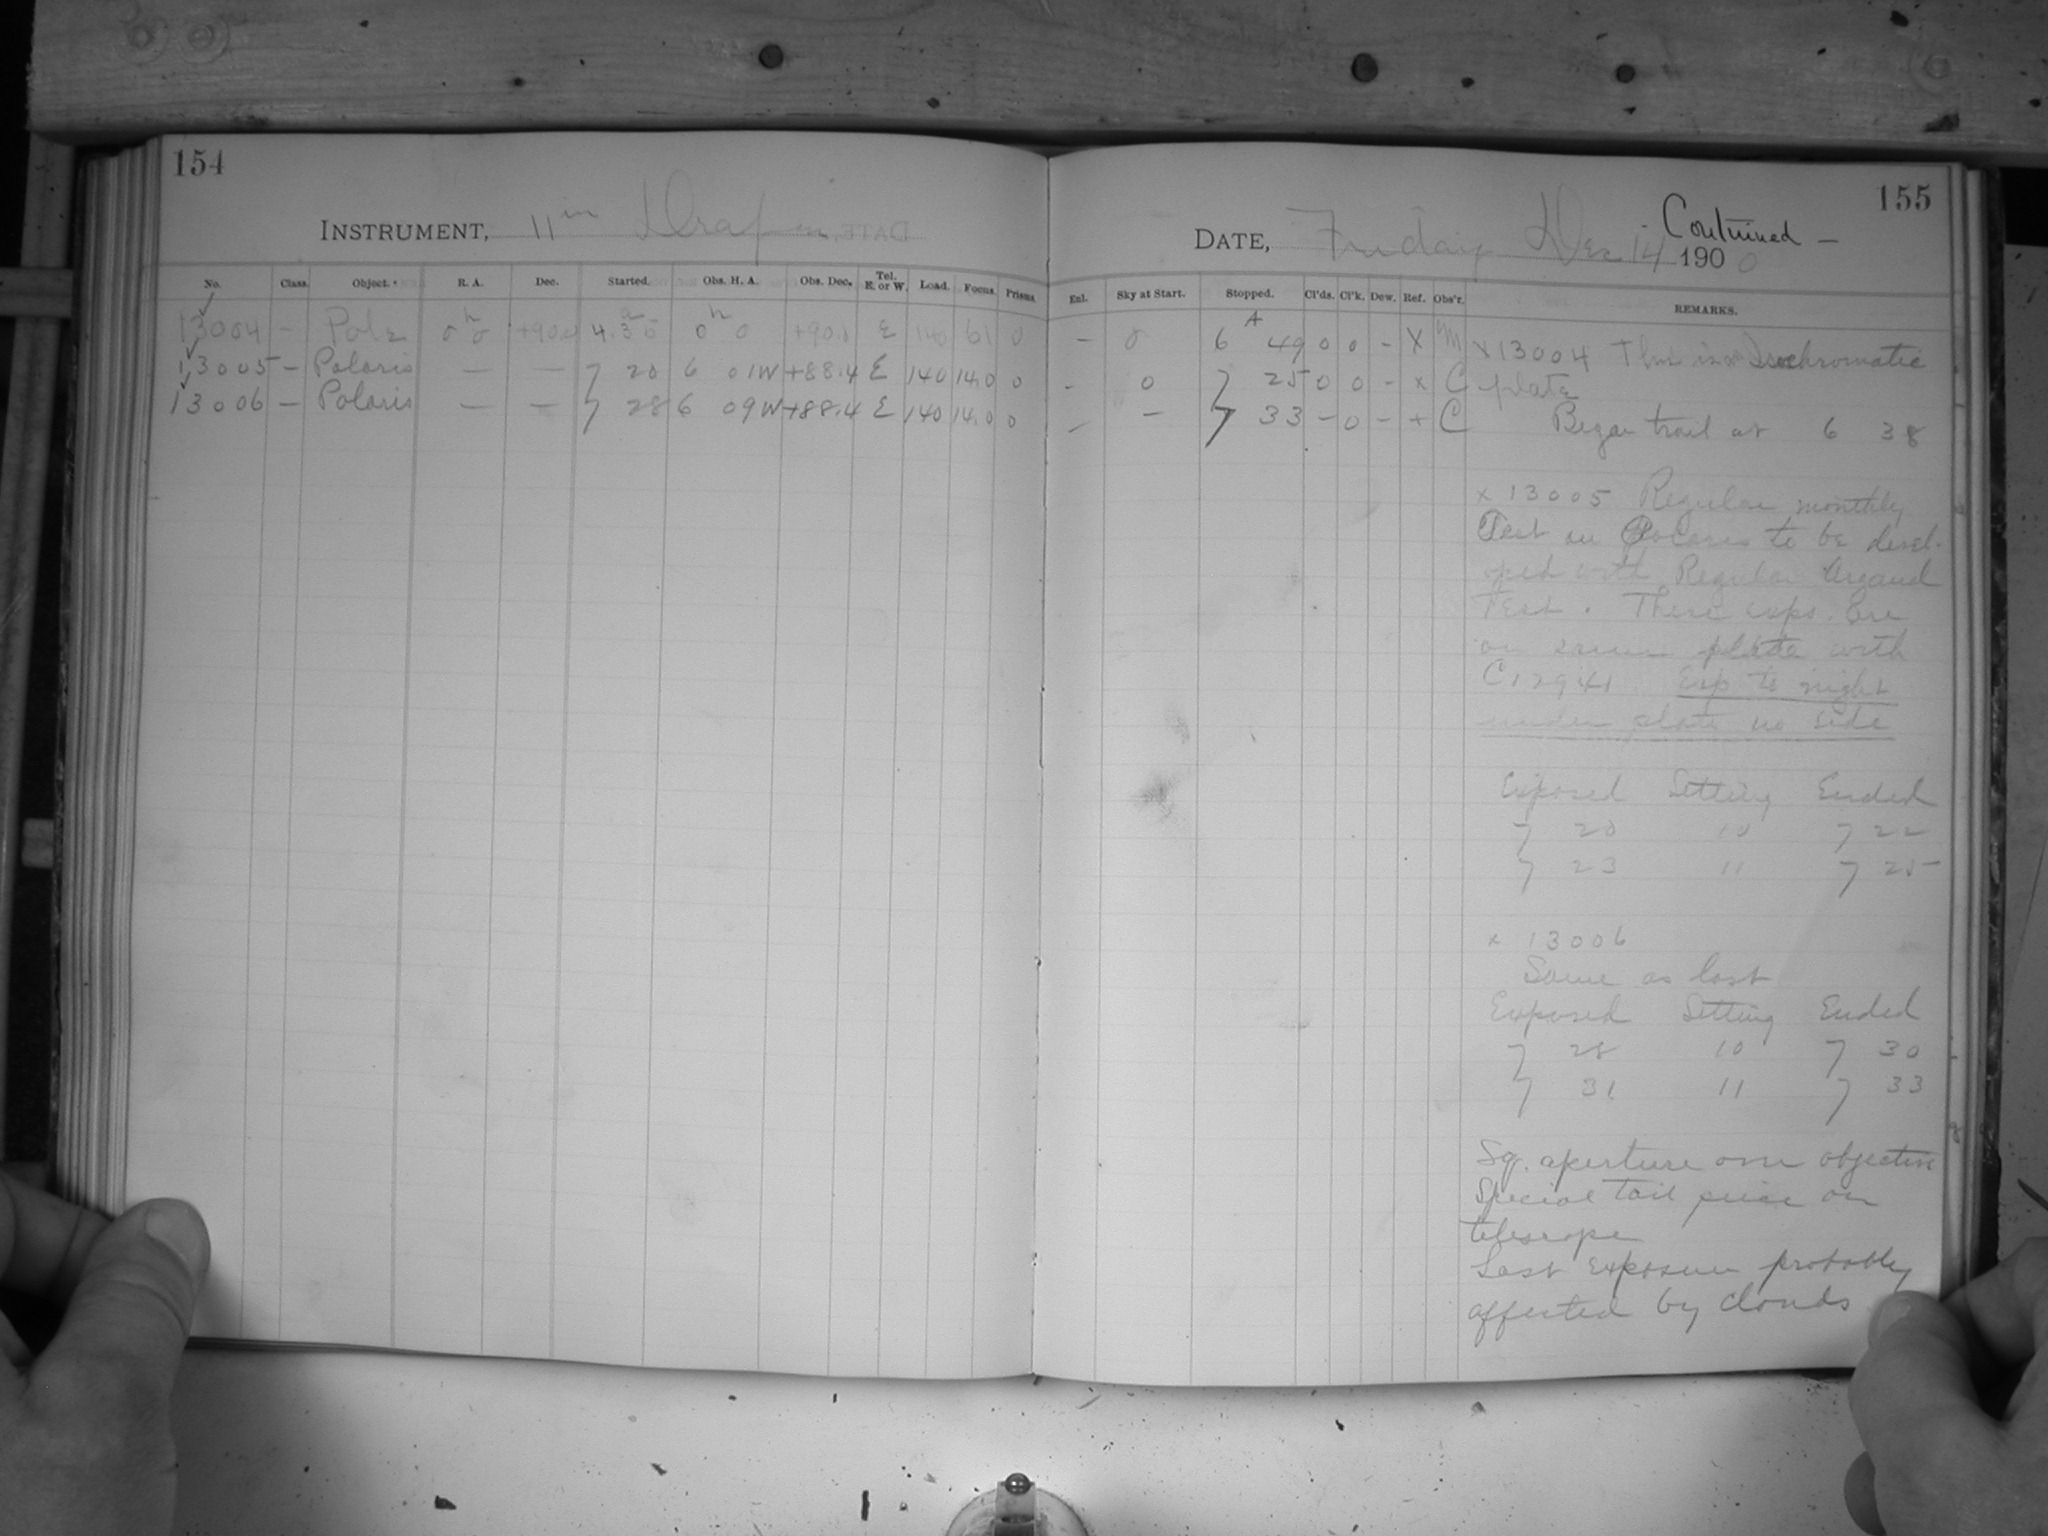 154
INSTRUMENT, 11 in Draper
No. Class. Object. R. A. Dec. Started. Obs. H. A. Obs. Dec. Tel. E. or W. Load. Focus. Prisms.
13004 – Pole 0h 0 +90.0 0h 0 +90.0 E 140 61 0
13005 – Polaris — — 7 20 6 01W +88.4 E 140 14.0 0
13006 – Polaris — — 7 28 6 09W +88.4 E 140 14.0 0
155
Continued —
DATE, Friday Dec 14 1900
Enl. Sky at Start. Stopped. Cl'ds. Cl'k. Dew. Ref. Obs'r. REMARKS.
– 0 6 A 49 0 0 – X M x13004 This is an Isochromatic
– 0 7 25 0 0 – x C plate
– – 7 33 – 0 – + C Began trail at 6 38
x 13005 Regular monthly
Test on Polaris to be devel-
oped with Regular Argand
Test. These exps. are
on same plate with
C12941 Exp to night
under plate no side
Exposed Setting Ended
7 20 10 7 22
7 23 11 7 25
x 13006
Same as last
Exposed Setting Ended
7 28 10 7 30
7 31 11 7 33
Sq. aperture over objective
Special tail piece on
telescope
Last exposure probably
affected by clouds